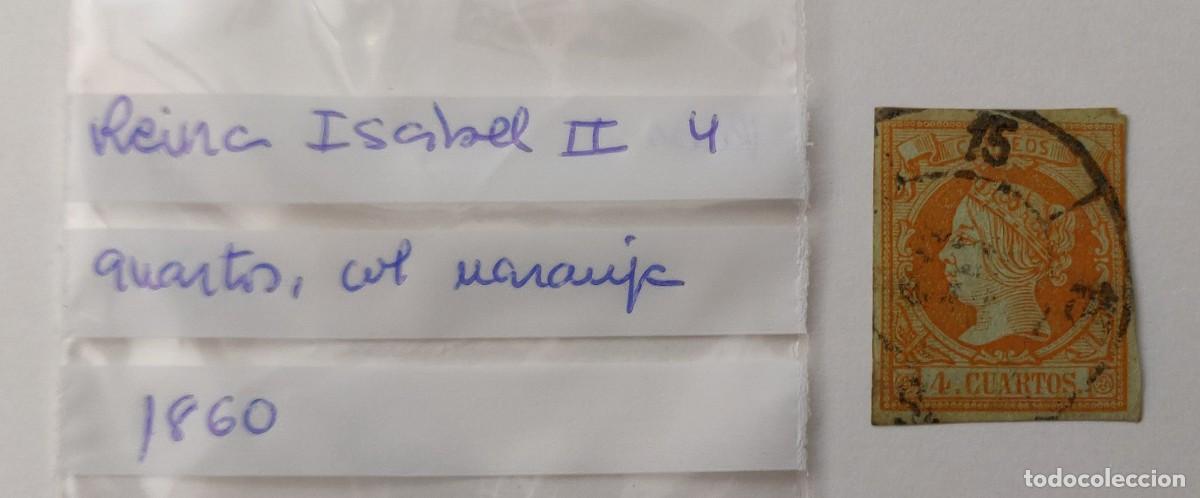 Reina Isabel II 4
quartos, col naranja
1860
CORREOS
15
4. CUARTOS.
todocoleccion